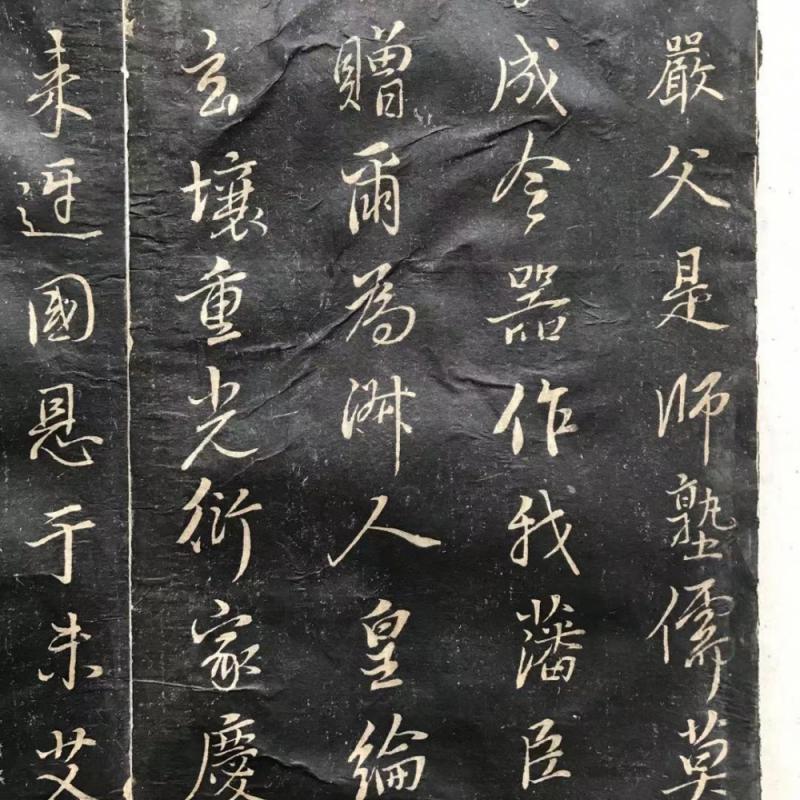 嚴父是師塾儒莫
成令器作我藩臣
贈爾為淑人皇綸
玄壤重光衍家慶
来迓國恩于未艾